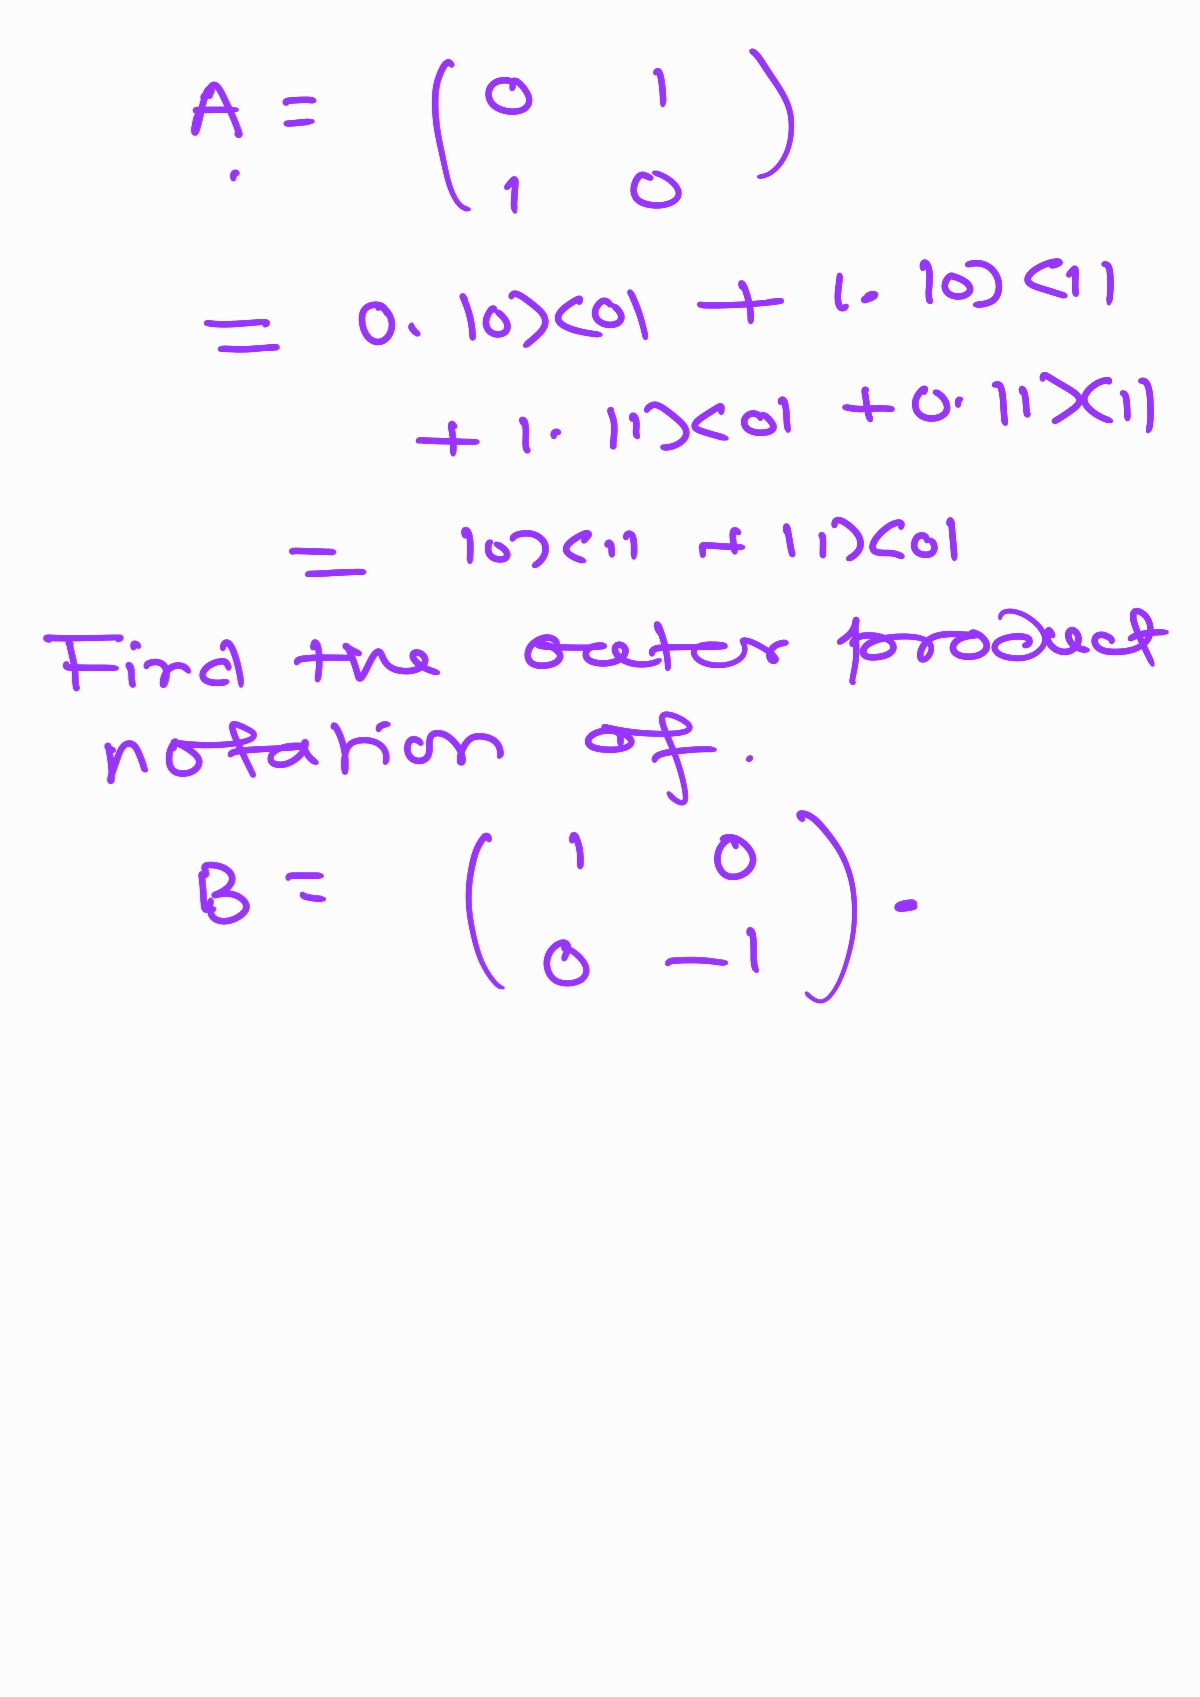 A = ( 0 1
1 0 )
= 0. |0><0| + 1. |0><1|
+ 1. |1><0| + 0. |1><1|
= |0><1| + |1><0|
Find the outer product
notation of.
B = ( 1 0
0 -1 ) .